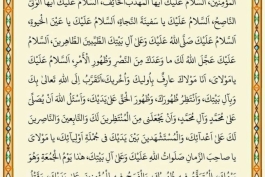 الْمُؤْمِنِينَ، اَلسَّلامُ عَلَيْكَ اَيُّهَا الْمُهَذَّبُ الْخائِفُ، اَلسَّلامُ عَلَيْكَ اَيُّهَا الْوَلِيُّ
النّاصِحُ، اَلسَّلامُ عَلَيْكَ يا سَفينَةَ النَّجاةِ، اَلسَّلامُ عَلَيْكَ يا عَيْنَ الْحَيوةِ،
اَلسَّلامُ عَلَيْكَ صَلَّى اللهُ عَلَيْكَ وَعَلى آلِ بَيْتِكَ الطَّيِّبينَ الطّاهِرينَ، اَلسَّلامُ
عَلَيْكَ عَجَّلَ اللهُ لَكَ ما وَعَدَكَ مِنَ النَّصْرِ وَظُهُورِ الْأَمْرِ، اَلسَّلامُ عَلَيْكَ
يا مَوْلايَ، اَنَا مَوْلاكَ عارِفٌ بِأُوليكَ وَأُخْريكَ، اَتَقَرَّبُ اِلَى اللهِ تَعالى بِكَ
وَبِآلِ بَيْتِكَ، وَاَنْتَظِرُ ظُهُورَكَ، وَظُهُورَ الْحَقِّ عَلى يَدَيْكَ، وَاَسْئَلُ اللهَ اَنْ يُصَلِّيَ
عَلى مُحَمَّدٍ وَآلِ مُحَمَّدٍ، وَاَنْ يَجْعَلَنى مِنَ الْمُنْتَظِرينَ لَكَ وَالتّابِعينَ وَالنّاصِرينَ
لَكَ عَلى اَعْدآئِكَ، وَالْمُسْتَشْهَدينَ بَيْنَ يَدَيْكَ فى جُمْلَةِ اَوْلِيآئِكَ، يا مَوْلايَ
يا صاحِبَ الزَّمانِ صَلَواتُ اللهِ عَلَيْكَ وَعَلى آلِ بَيْتِكَ، هذا يَوْمُ الْجُمُعَةِ وَهُوَ